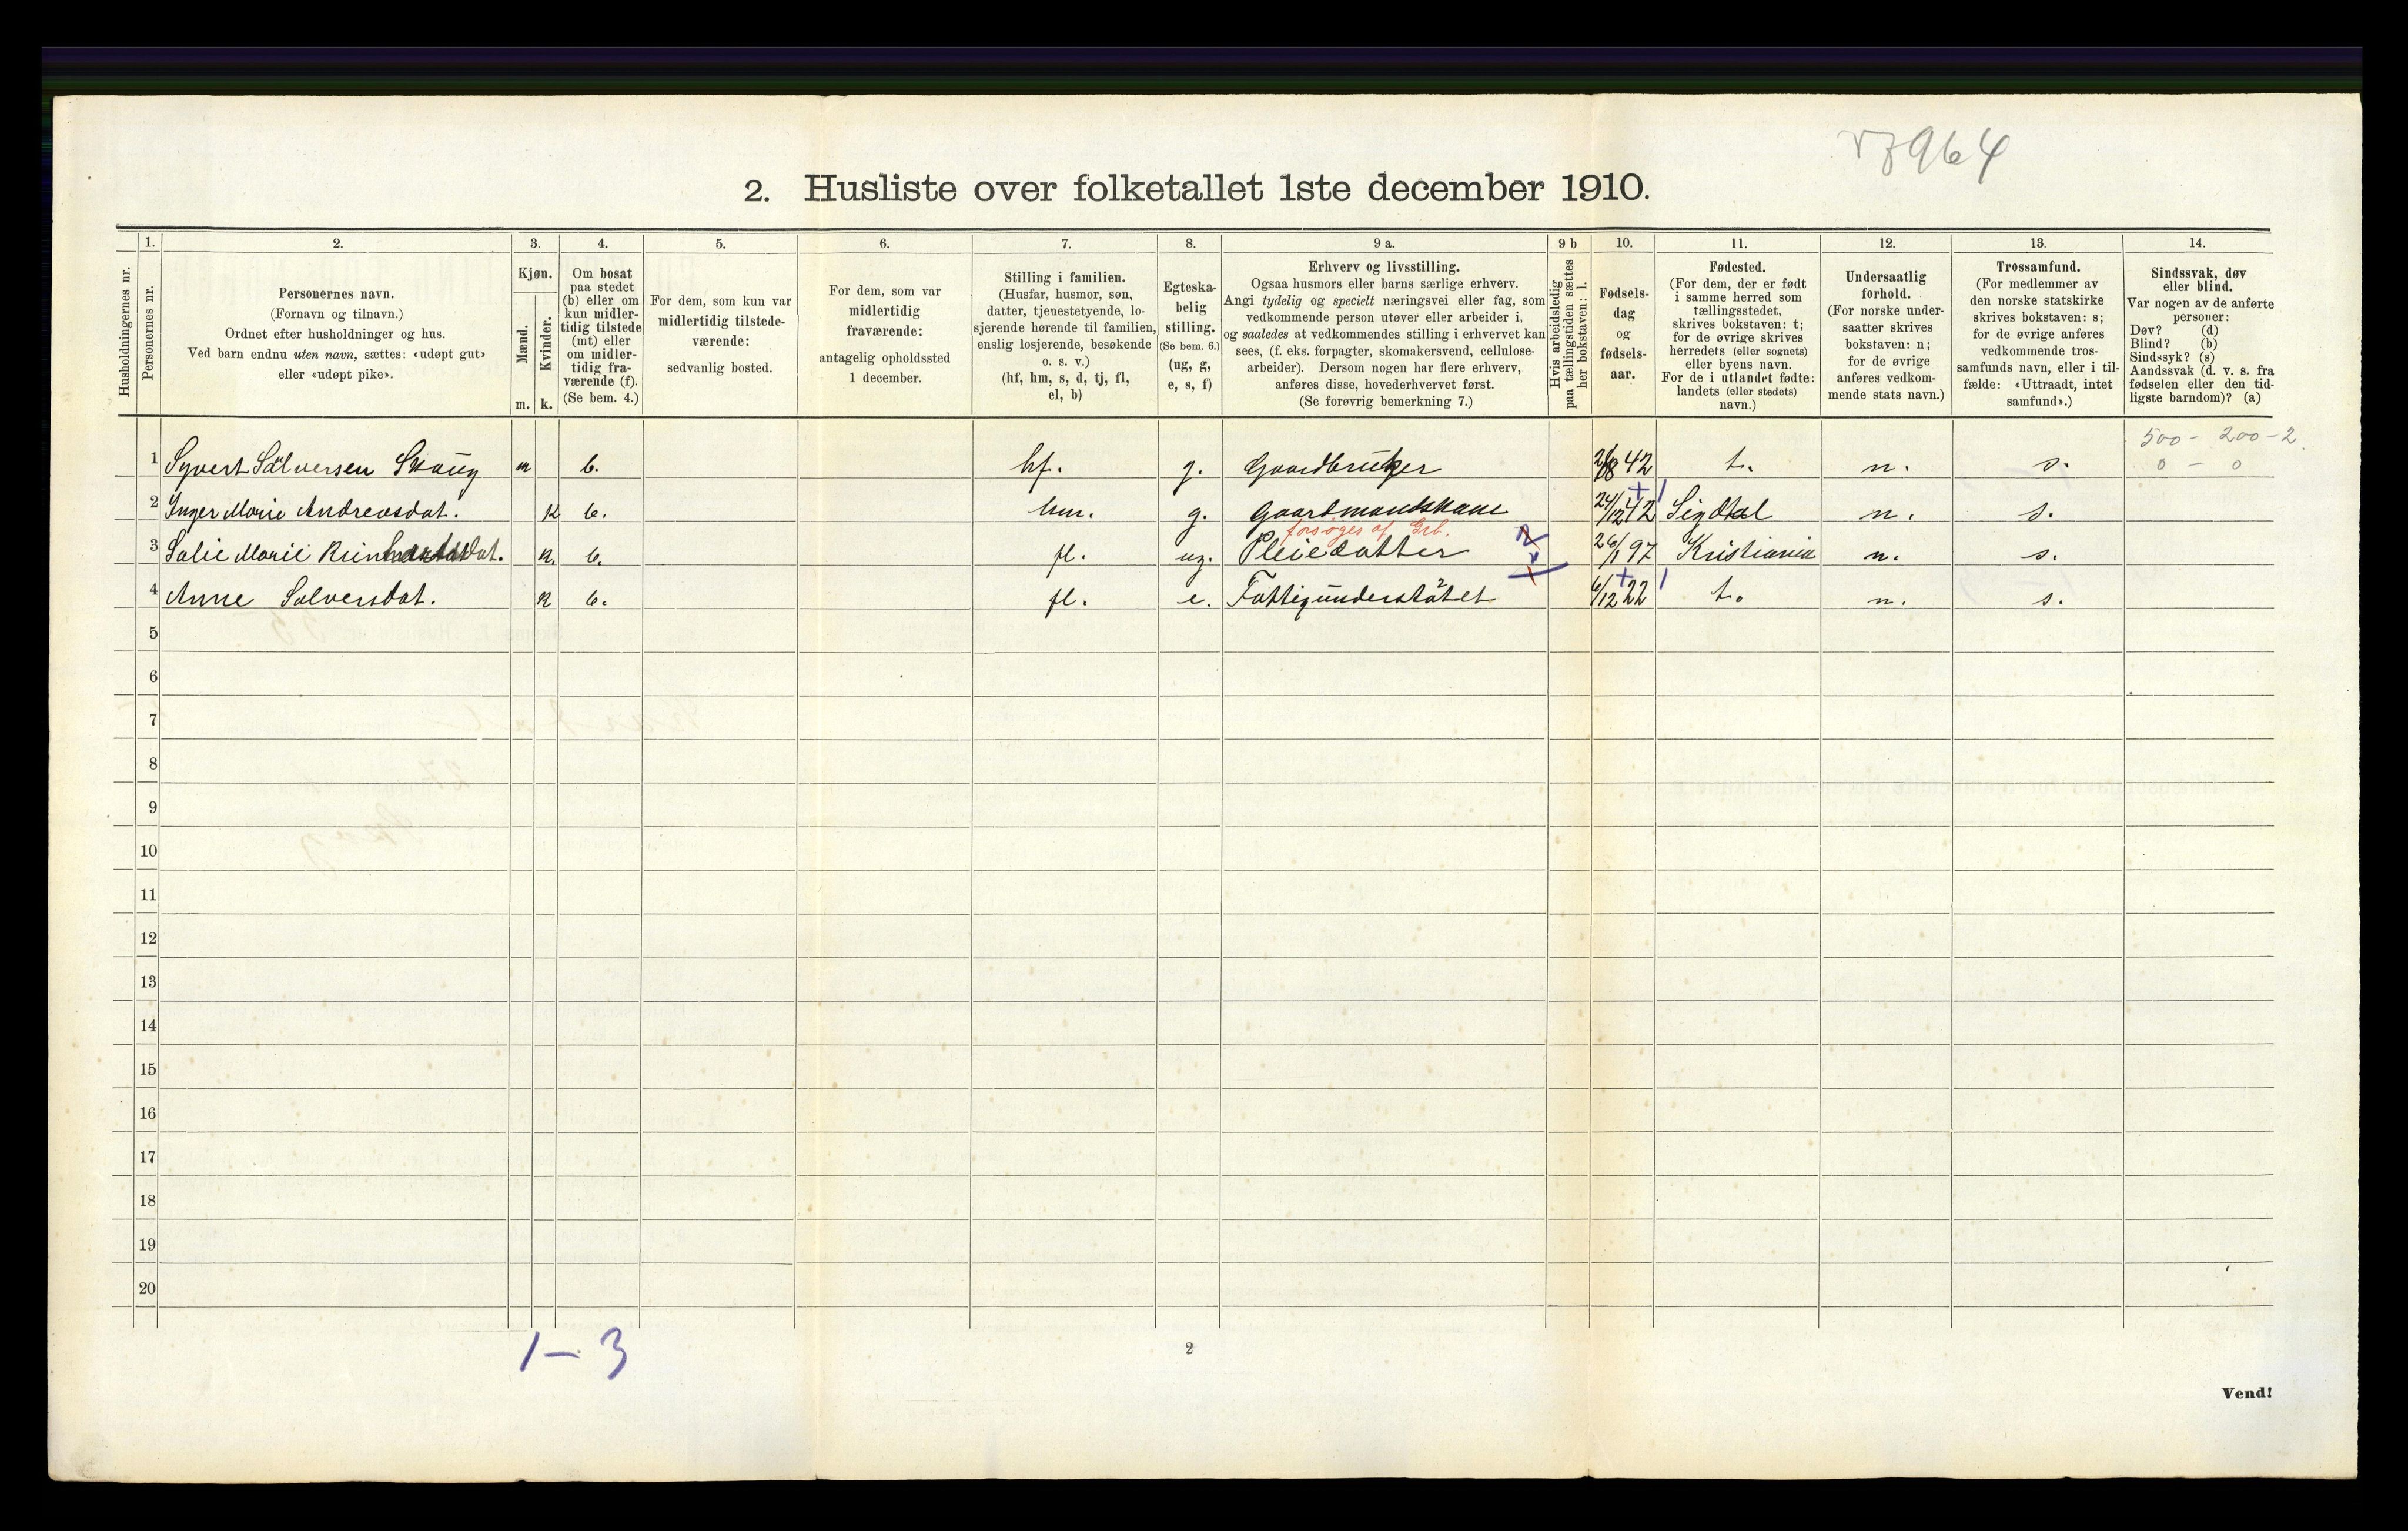 964
2. Husliste over folketallet 1ste december 1910.
Husholdningernes nr.
1. Personernes nr.
2. Personernes navn.
(Fornavn og tilnavn.)
Ordnet efter husholdninger og hus.
Ved barn endnu uten navn, sættes: «udøpt gut»
eller «udøpt pike».
3. Kjøn.
Mænd. m.
Kvinder. k.
4. Om bosat
paa stedet
(b) eller om
kun midler-
tidig tilstede
(mt) eller
om midler-
tidig fra-
værende (f).
(Se bem. 4.)
5. For dem, som kun var
midlertidig tilstede-
værende:
sedvanlig bosted.
6. For dem, som var
midlertidig
fraværende:
antagelig opholdssted
1 december.
7. Stilling i familien.
(Husfar, husmor, søn,
datter, tjenestetyende, lo-
sjerende hørende til familien,
enslig losjerende, besøkende
o. s. v.)
(hf, hm, s, d, tj, fl,
el, b)
8. Egteska-
belig
stilling.
(Se bem. 6.)
(ug, g,
e, s, f)
9 a. Erhverv og livsstilling.
Ogsaa husmors eller barns særlige erhverv.
Angi tydelig og specielt næringsvei eller fag, som
vedkommende person utøver eller arbeider i,
og saaledes at vedkommendes stilling i erhvervet kan
sees, (f. eks. forpagter, skomakersvend, cellulose-
arbeider). Dersom nogen har flere erhverv,
anføres disse, hovederhvervet først.
(Se forøvrig bemerkning 7.)
9 b Hvis arbeidsledig
paa tællingstiden sættes
her bokstaven: l.
10. Fødsels-
dag
og
fødsels-
aar.
11. Fødested.
(For dem, der er født
i samme herred som
tællingsstedet,
skrives bokstaven: t;
for de øvrige skrives
herredets (eller sognets)
eller byens navn.
For de i utlandet fødte:
landets (eller stedets)
navn.)
12. Undersaatlig
forhold.
(For norske under-
saatter skrives
bokstaven: n;
for de øvrige
anføres vedkom-
mende stats navn.)
13. Trossamfund.
(For medlemmer av
den norske statskirke
skrives bokstaven: s;
for de øvrige anføres
vedkommende tros-
samfunds navn, eller i til-
fælde: «Uttraadt, intet
samfund».)
14. Sindssvak, døv
eller blind.
Var nogen av de anførte
personer:
Døv? (d)
Blind? (b)
Sindssyk? (s)
Aandssvak (d. v. s. fra
fødselen eller den tid-
ligste barndom)? (a)
500 - 200 - 2
1 Syvert Sølversen Skaug m b. hf. g. Gaardbruker 2/8 42 t. n. s. 0 - 0
2 Inger Marie Andreasdat. k b. hm. g. Gaardmandskone 24/12 42 Sigdal n. s.
forsøges af Grb.
3 Marie k. b. fl. ug. Pleiedatter 26/1 97 Kristiania n. s.
4 Anne Solversdat. k b. fl. e. Fattigunderstøtet 6/12 22 t. n. s.
5
6
7
8
9
10
11
12
13
14
15
16
17
18
19
20
1 - 3
2
Vend!